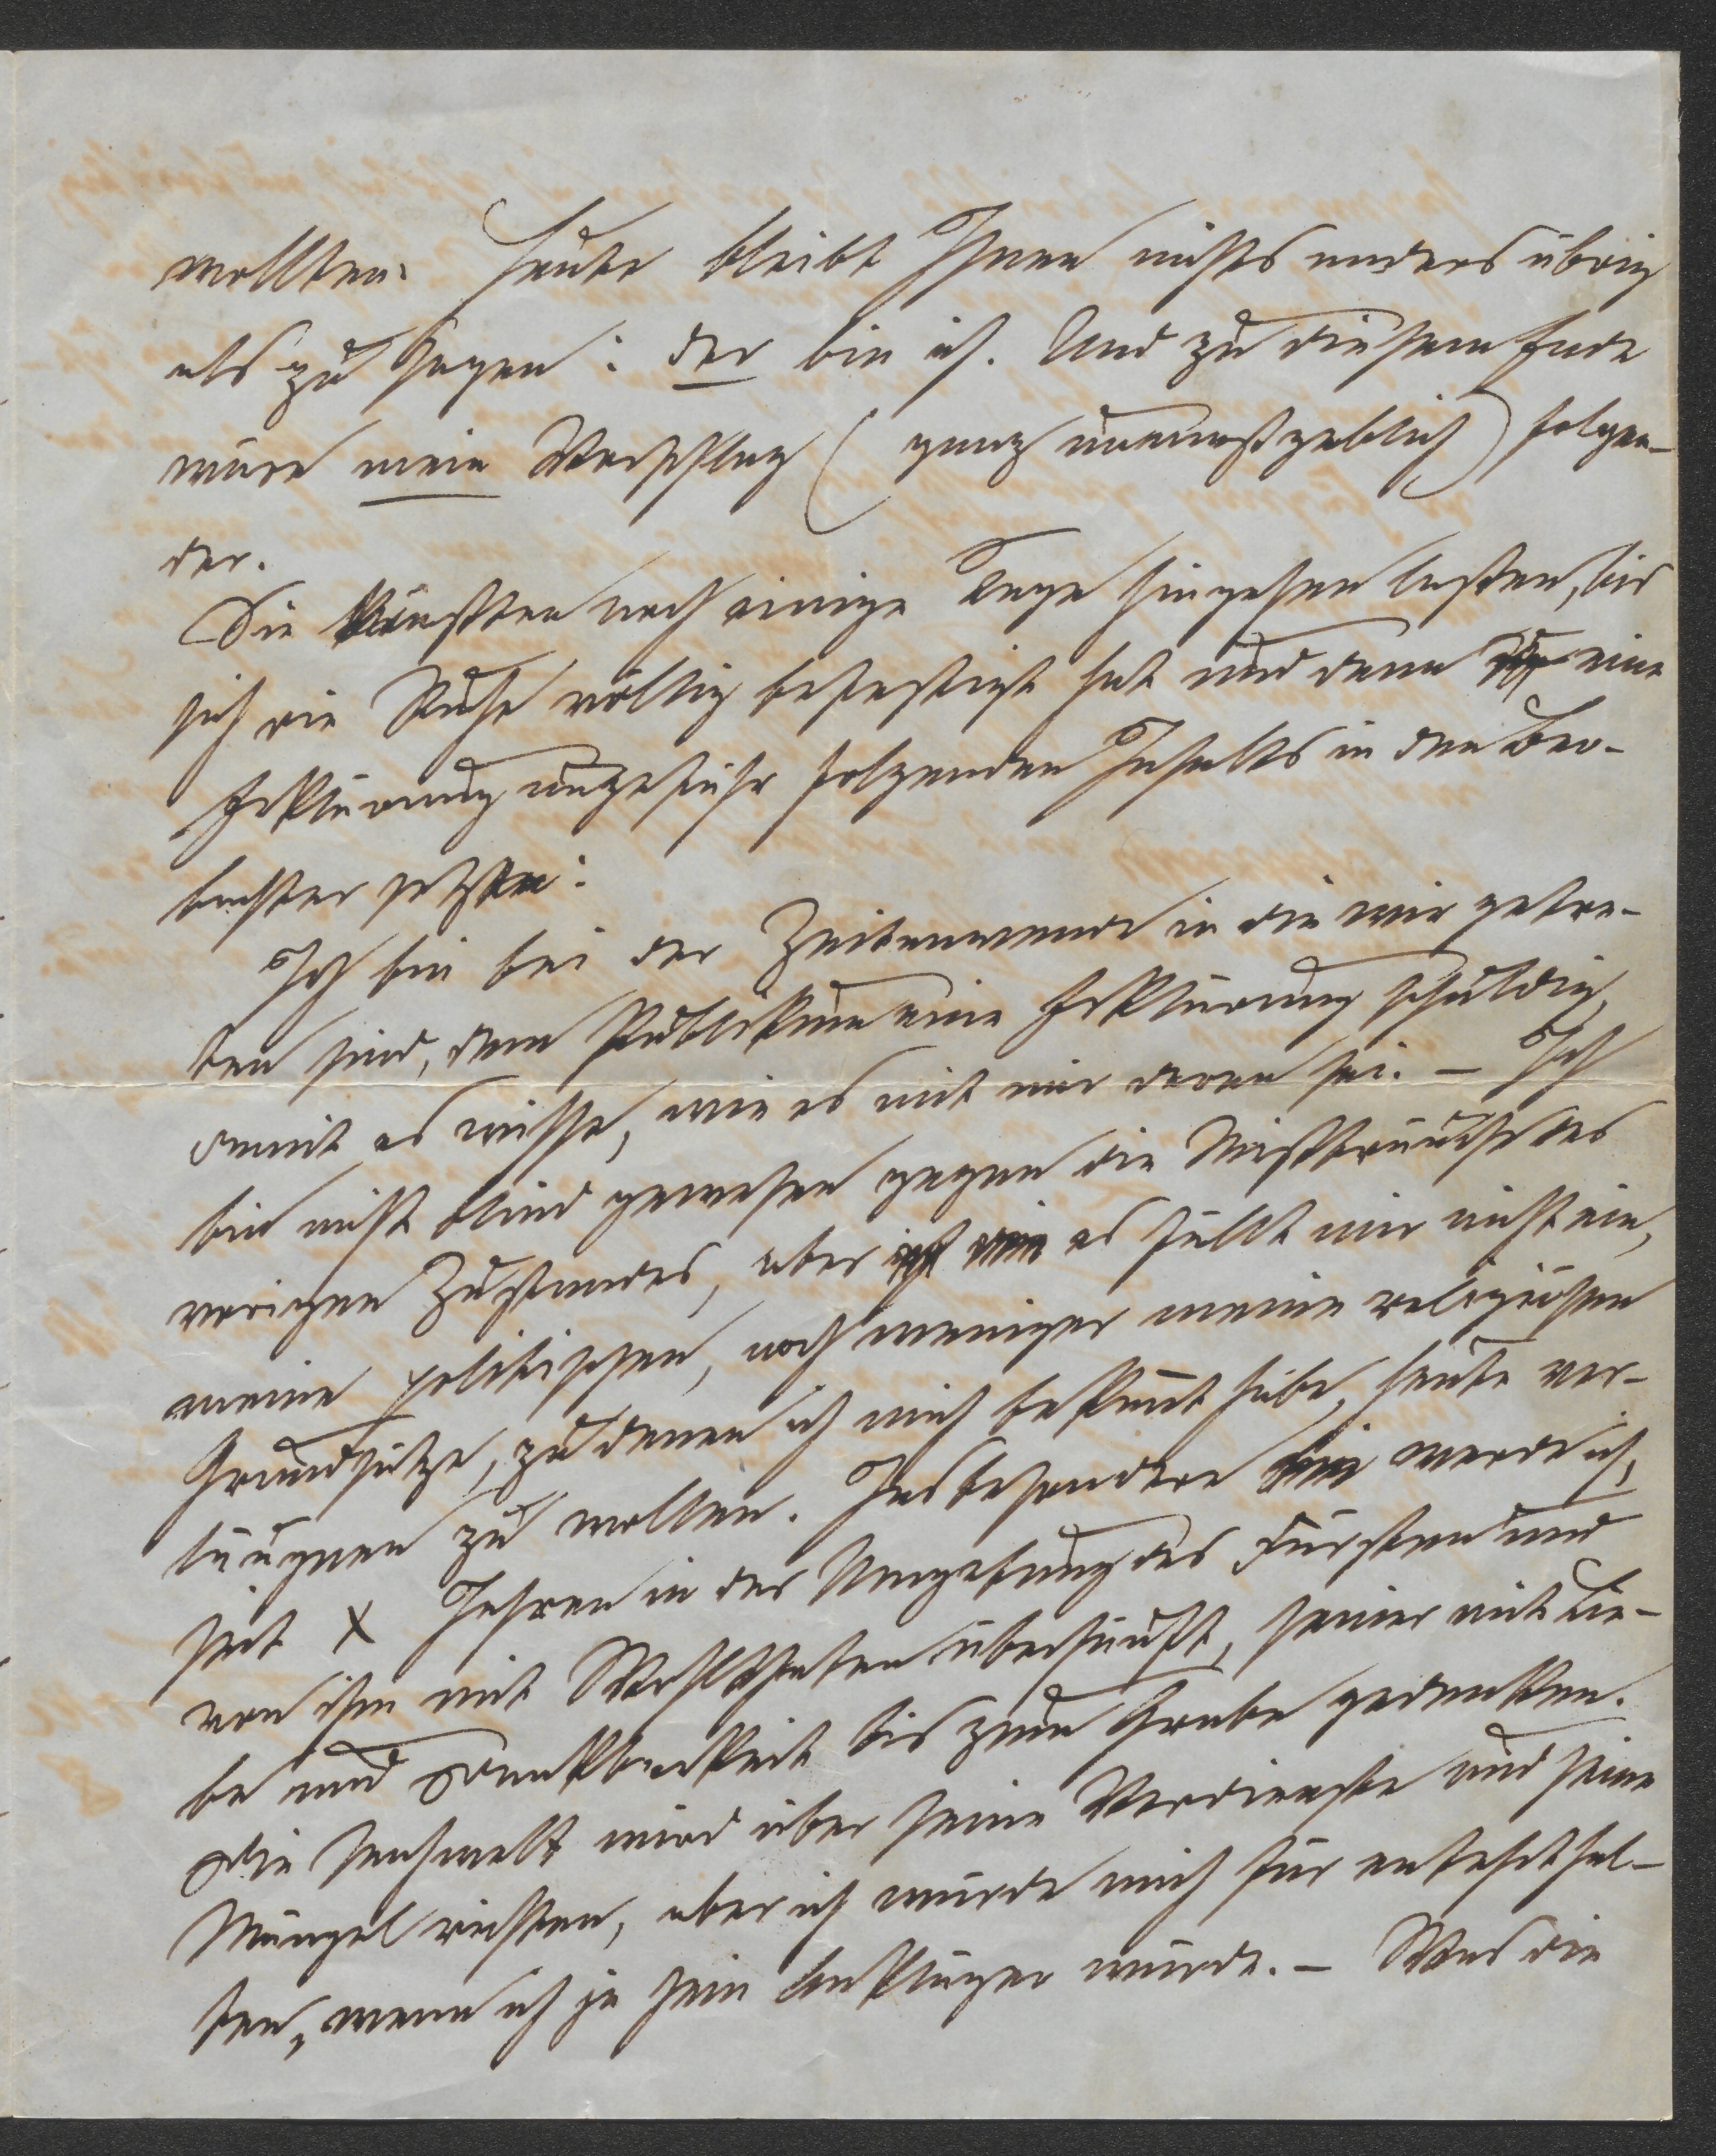 wollten. Heute bleibt Ihnen nichts anders übrig
als zu sagen: der bin ich. Und zu diesem Ende
wäre mein Vorschlag (ganz unmaßgeblich) folgen-
der.
Sie müßten noch einige Tage hingehen laßen, bis
sich die Ruhe völlig befestigt hat und dann eine
Erklärung ungefähr folgenden Inhalts in den Beo-
bachter setzen:
Ich bin bei der Zeitenwende in die wir getre-
ten sind, dem Publikum eine Erklärung schuldig,
damit es wisse, wie es mit mir daran sei. – Ich
bin nicht blind gewesen gegen die Mißbräuche des
vorigen Zustandes, aber es fällt mir nicht ein,
meine politischen, noch weniger meine religiösen
Grundsätze, zu denen ich mich bekannt habe, heute ver-
läugnen zu wollen. Insbesondere werde ich,
seit X Jahren in der Umgebung des Fürsten und
von ihm mit Wohlthaten überhäuft, seiner mit Lie-
be und Dankbarkeit bis zum Grabe gedenken.
Die Nachwelt wird über seine Verdienste und seine
Mängel richten, aber ich würde mich für entehrt hal-
ten, wenn ich je sein Ankläger würde. – Was die